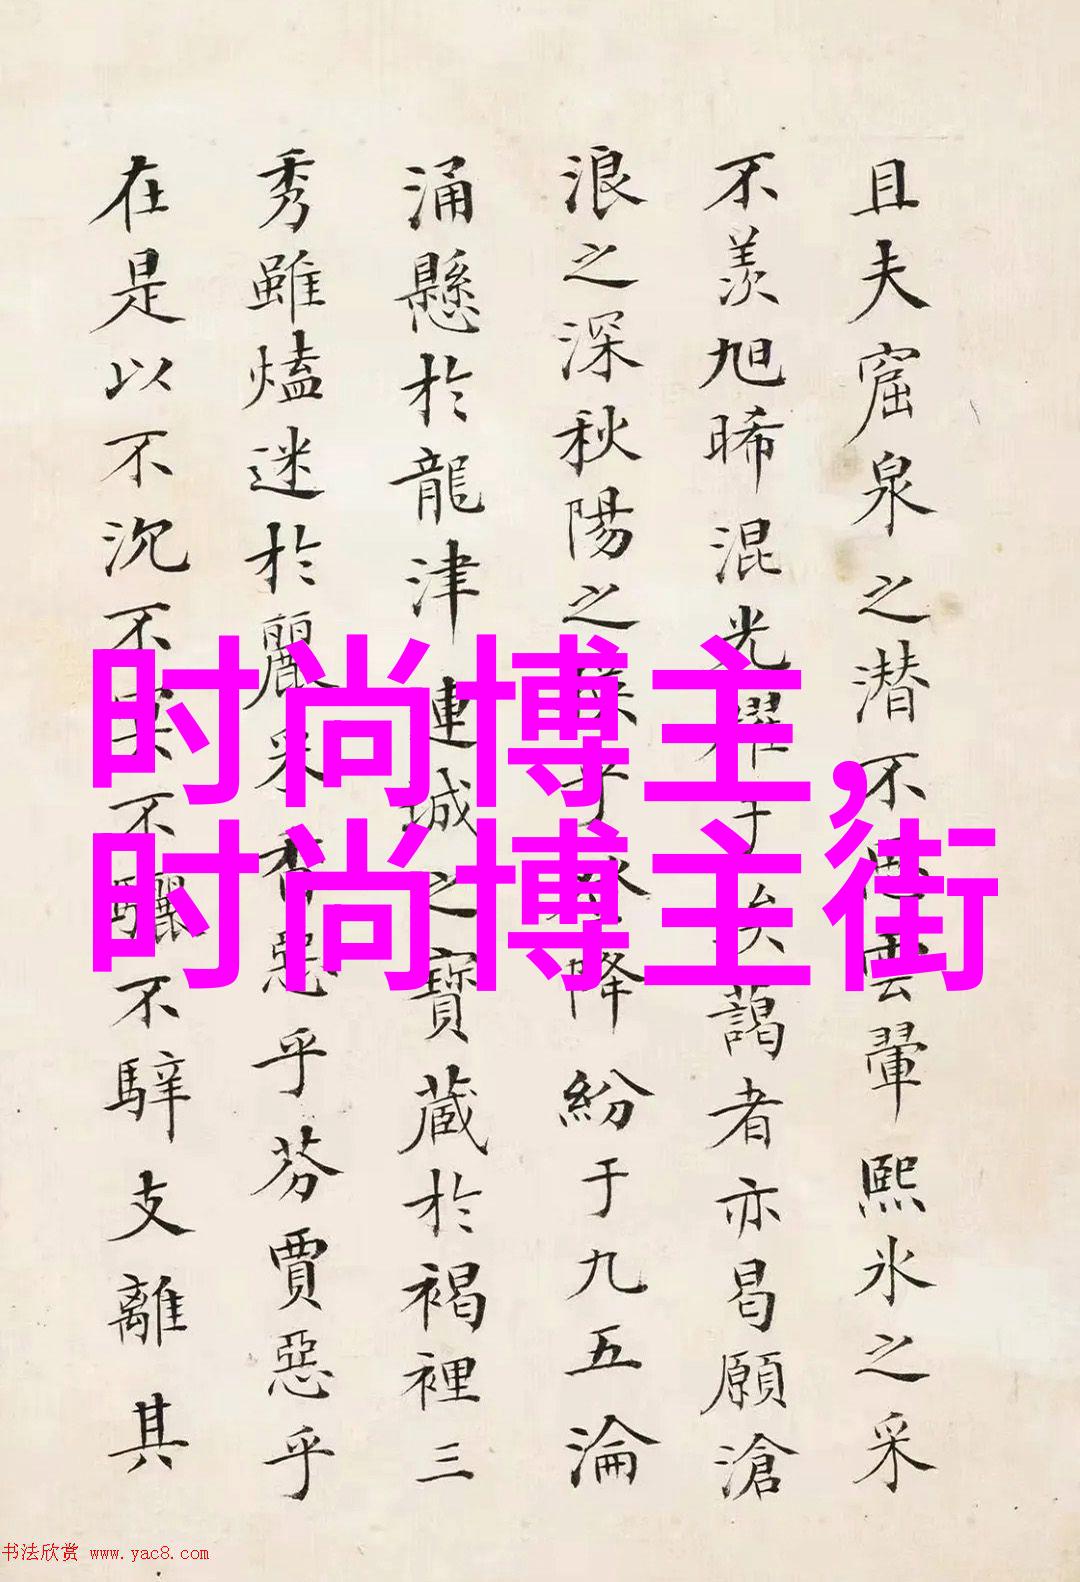 且夫窟泉之潜不雲翬熙氷之采
不羡旭晞混光耀于者亦曷願滄
浪之深秋陽之乎降紛于九五淪
涌懸於龍津連城之寳蔵於褐裡三
秀雖熆迷於麗采香惡乎芬賈惡乎
在是以不沉不不驪不騂支離其
时尚博主,
时尚博主街
书法欣赏 www.yac8.com